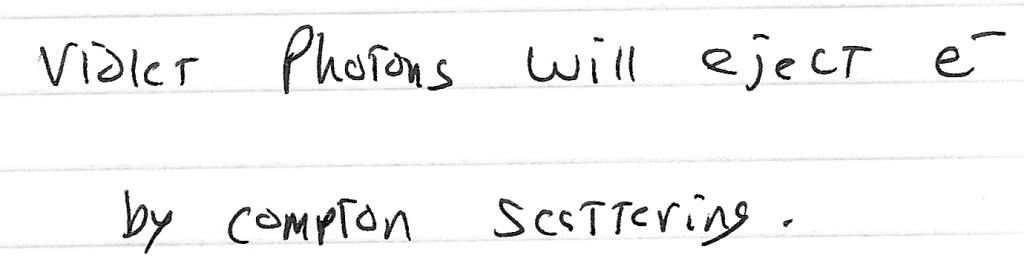 Violet Photons will eject e⁻
by compton scattering.